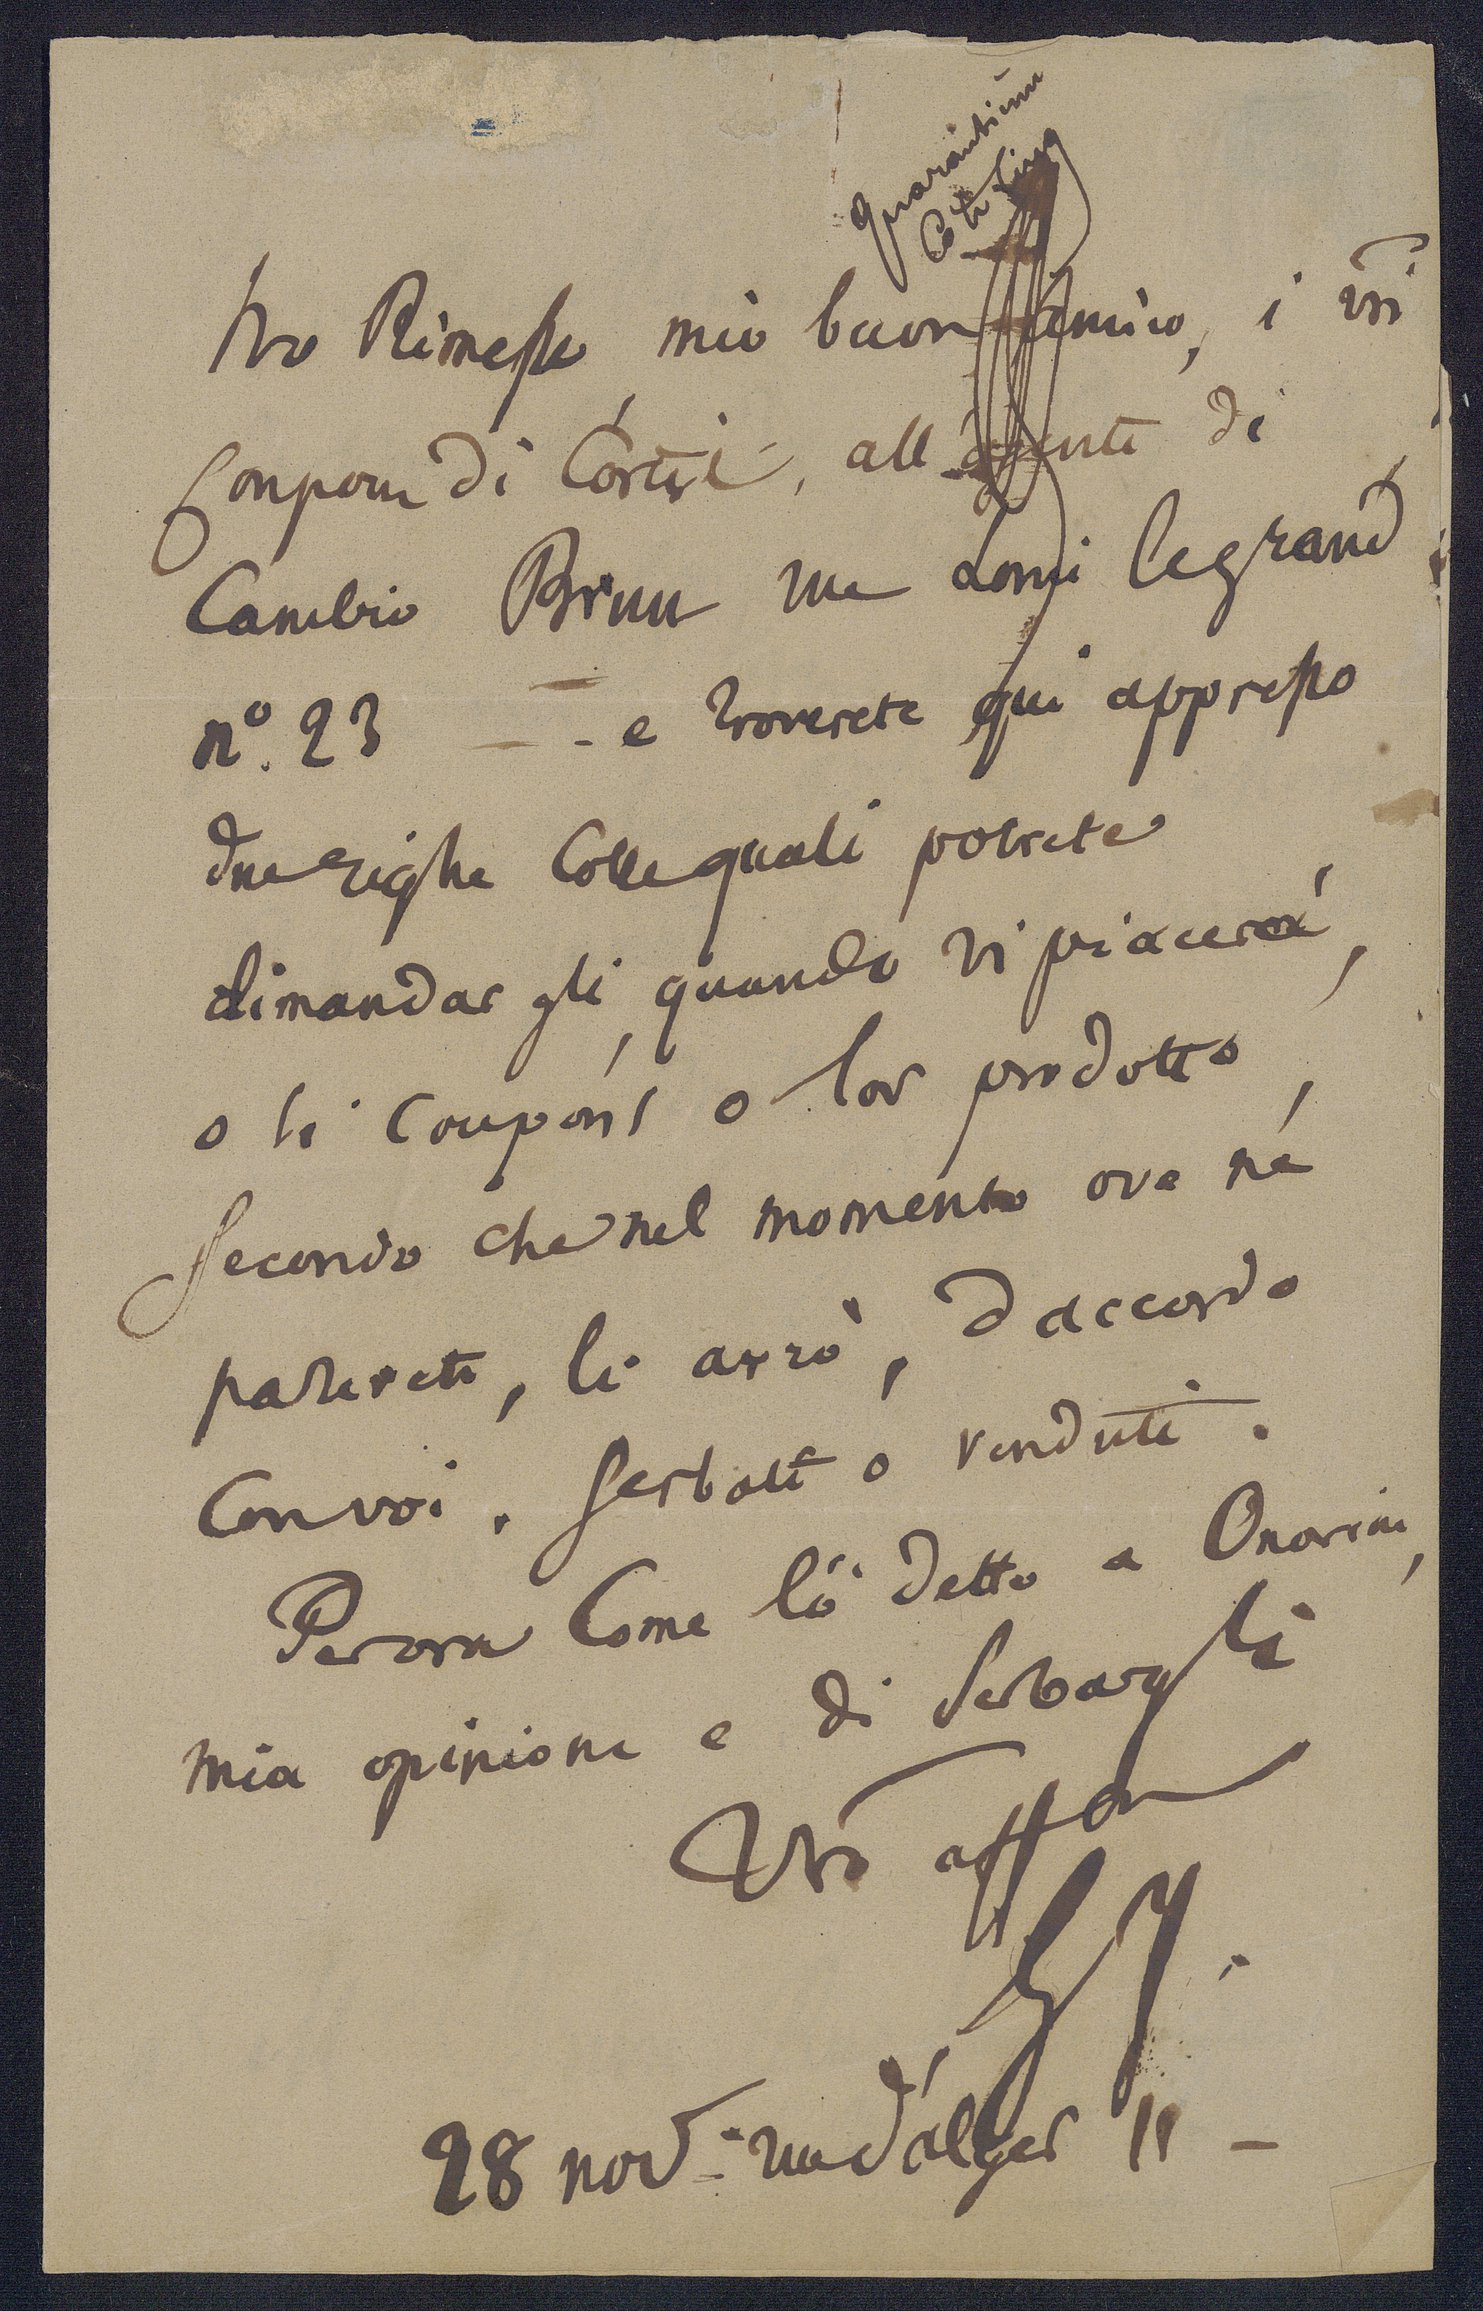 Ho Rimesso mio buon Amico, i vri
Coupons di Cortes, all'agente di
Cambio Brun rue Louis legrand
nº. 23 - e troverete qui appresso
due righe colle quali potrete
dimandar gli, quando vi piacerà,
o li coupons o lor prodotto,
secondo che nel momento ove ne
parlerete, li avrò, d'accordo
con voi. serbati o venduti.
Perora come lò detto a Onorina,
mia opinione e di serbargli
Vro affon
28 nov. rue d'alger 11 -